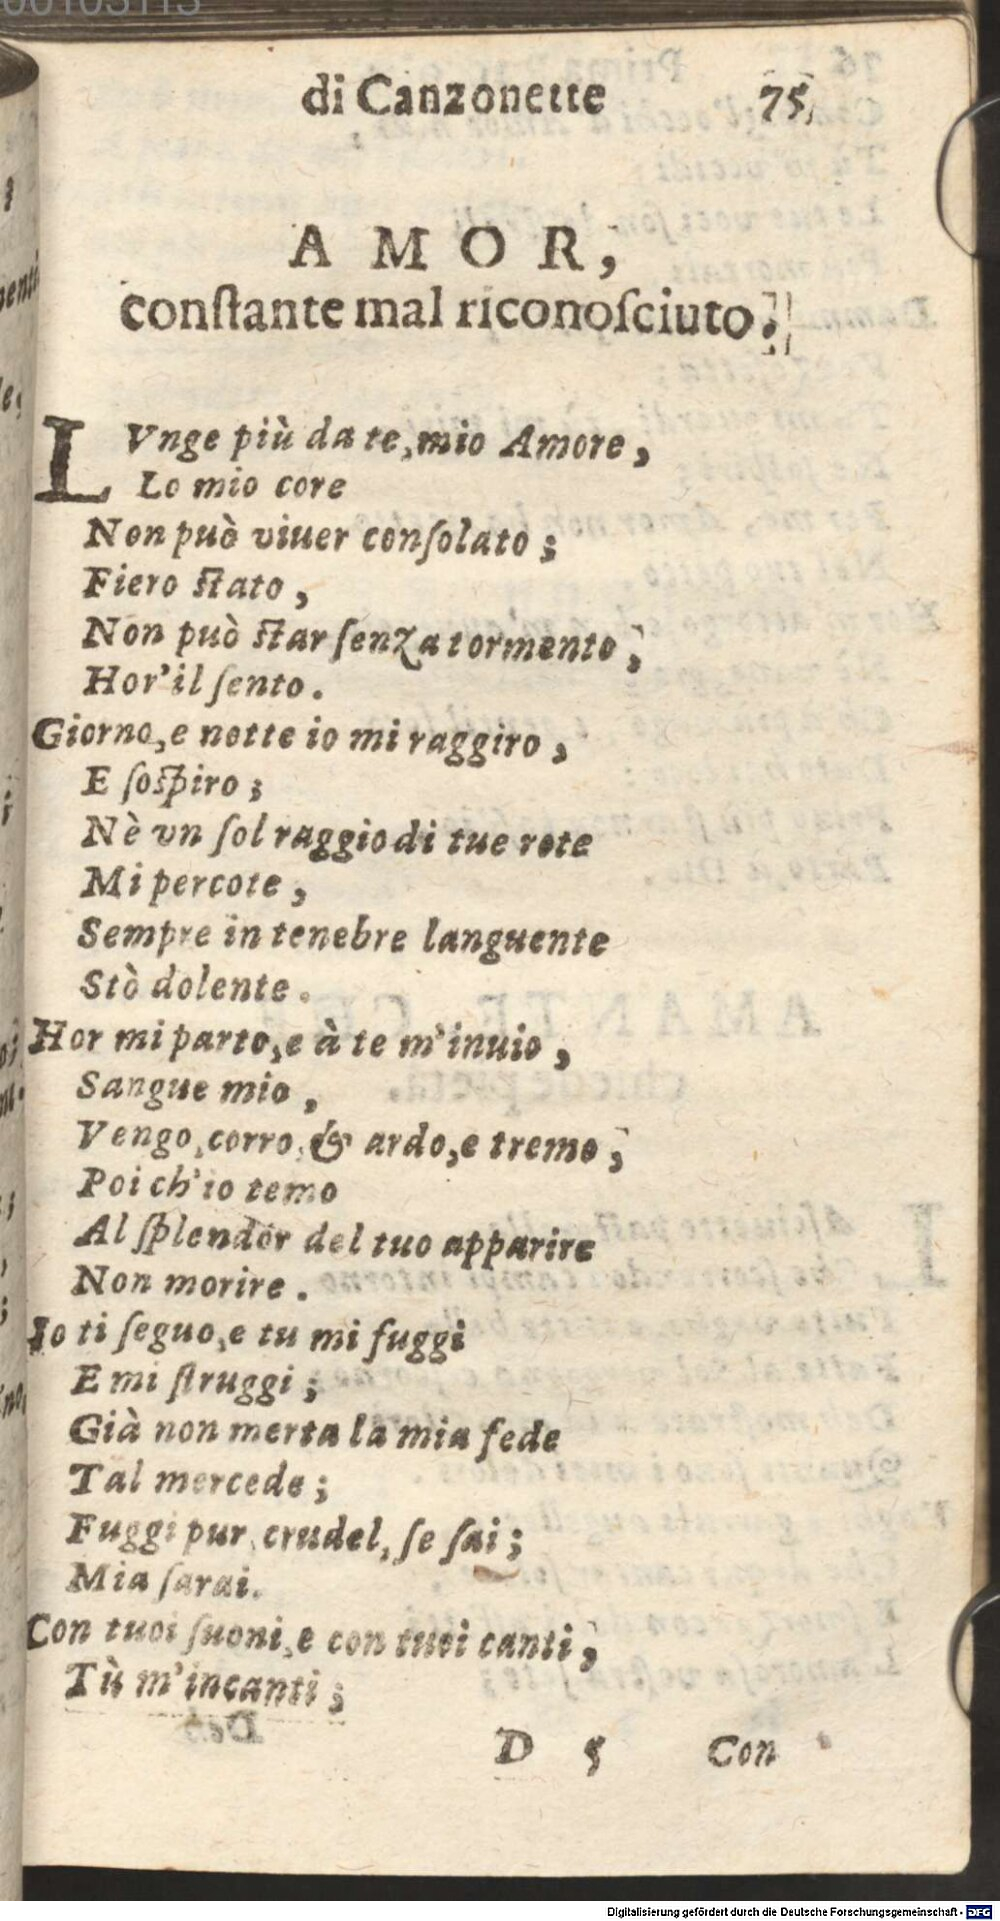 di Canzonette 75
AMOR,
conſtante mal riconoſciuto.
LVnge più da te, mio Amore,
Lo mio core
Non può viuer conſolato;
Fiero ſtato,
Non può ſtar ſenza tormento;
Hor'il ſento.
Giorno, e notte io mi raggiro,
E ſoſpiro;
Nè vn ſol raggio di tue rote
Mi percote,
Sempre in tenebre languente
Stò dolente.
Hor mi parto, e à te m'inuio,
Sangue mio,
Vengo, corro, & ardo, e tremo;
Poi ch'io temo
Al ſplendor del tuo apparire
Non morire.
Io ti ſeguo, e tu mi fuggi
E mi ſtruggi;
Già non merta la mia fede
Tal mercede;
Fuggi pur, crudel, ſe ſai;
Mia ſarai.
Con tuoi ſuoni, e con tuoi canti,
Tù m'incanti;
D 5 Con
Digitalisierung gefördert durch die Deutsche Forschungsgemeinschaft - DFG